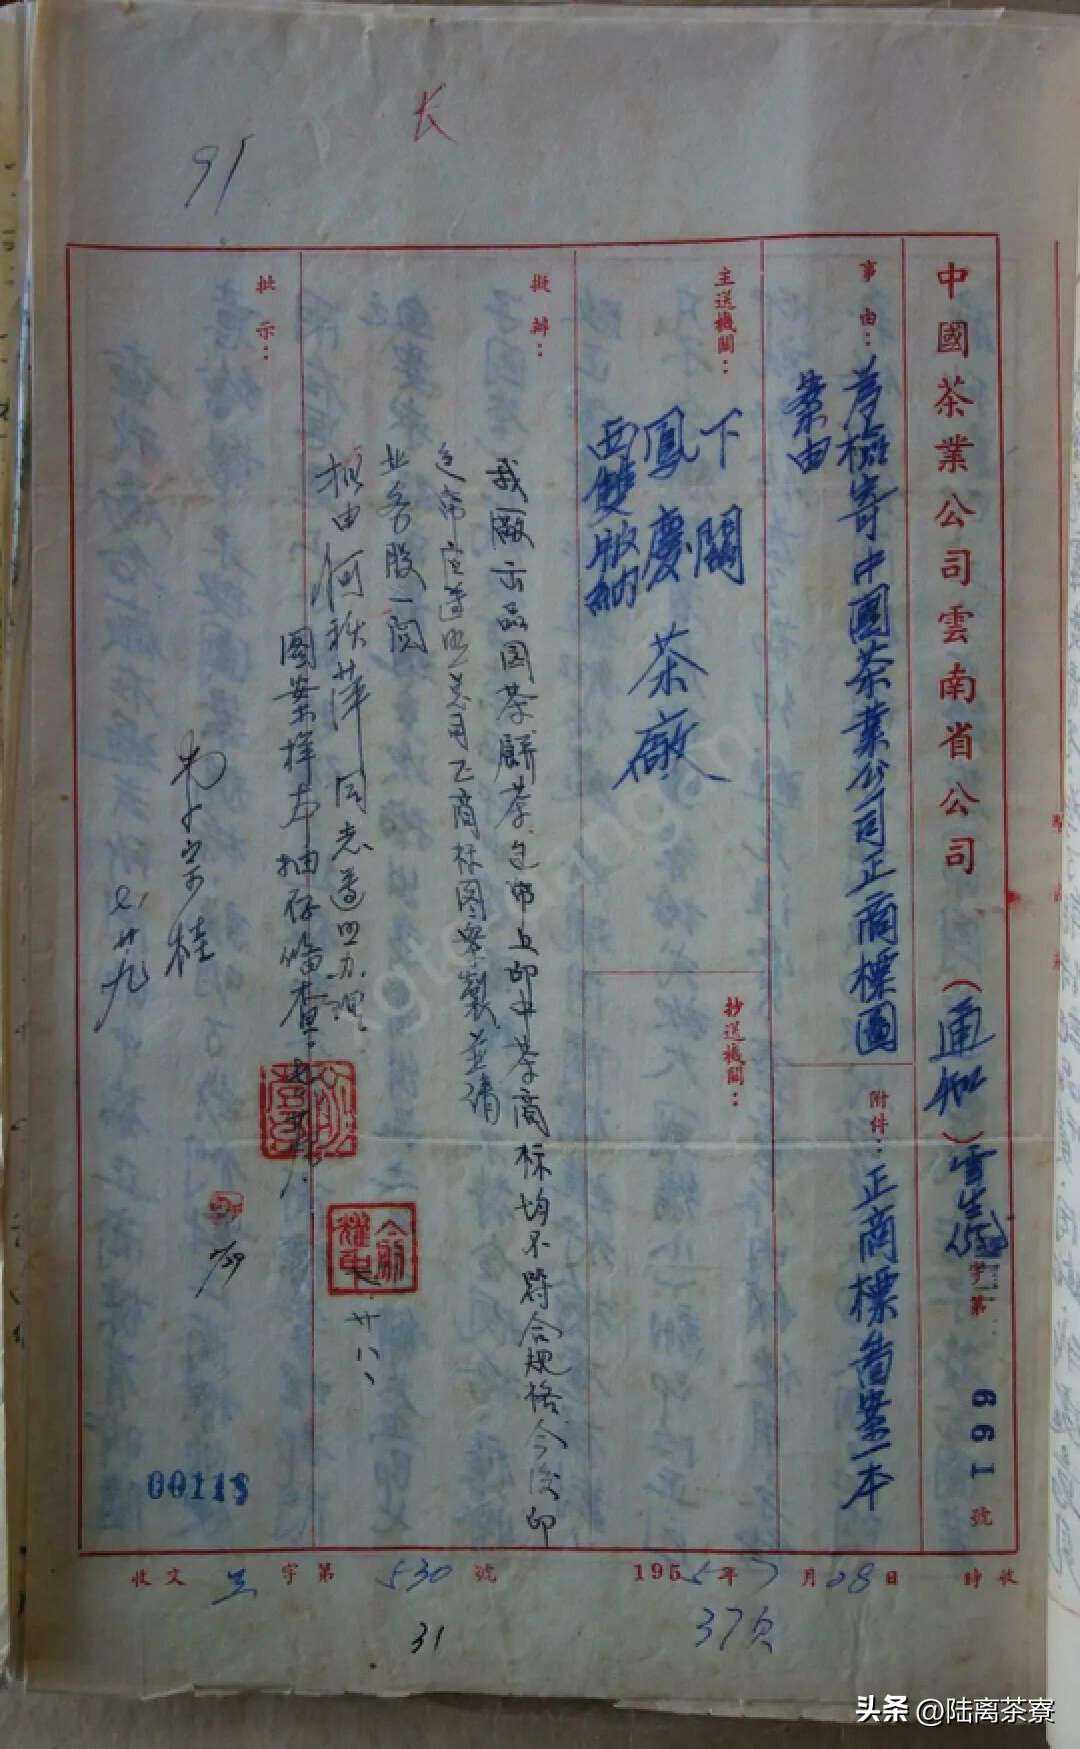 长
91
中國茶業公司雲南省公司（通知）雲生 字第 1991 號
事由：為檢寄中國茶業公司正商標圖
案由
附件：正商標圖案一本
主送機關：
下關
鳳慶 茶廠
西雙版納
抄送機關：
擬辦：
我廠出品园茶餅茶包席上印中茶商标均不符合规格，今后印
包席应遵照总司正商标图案製並请
业务股一阅
批示：
拟由何秩萍同志遵照办理
图案样本抽存备查
七、廿八、
七、廿九
7/29
00113
收文 字第530號
1955年7月28日 收
31
37页
头条 @陆离茶寮